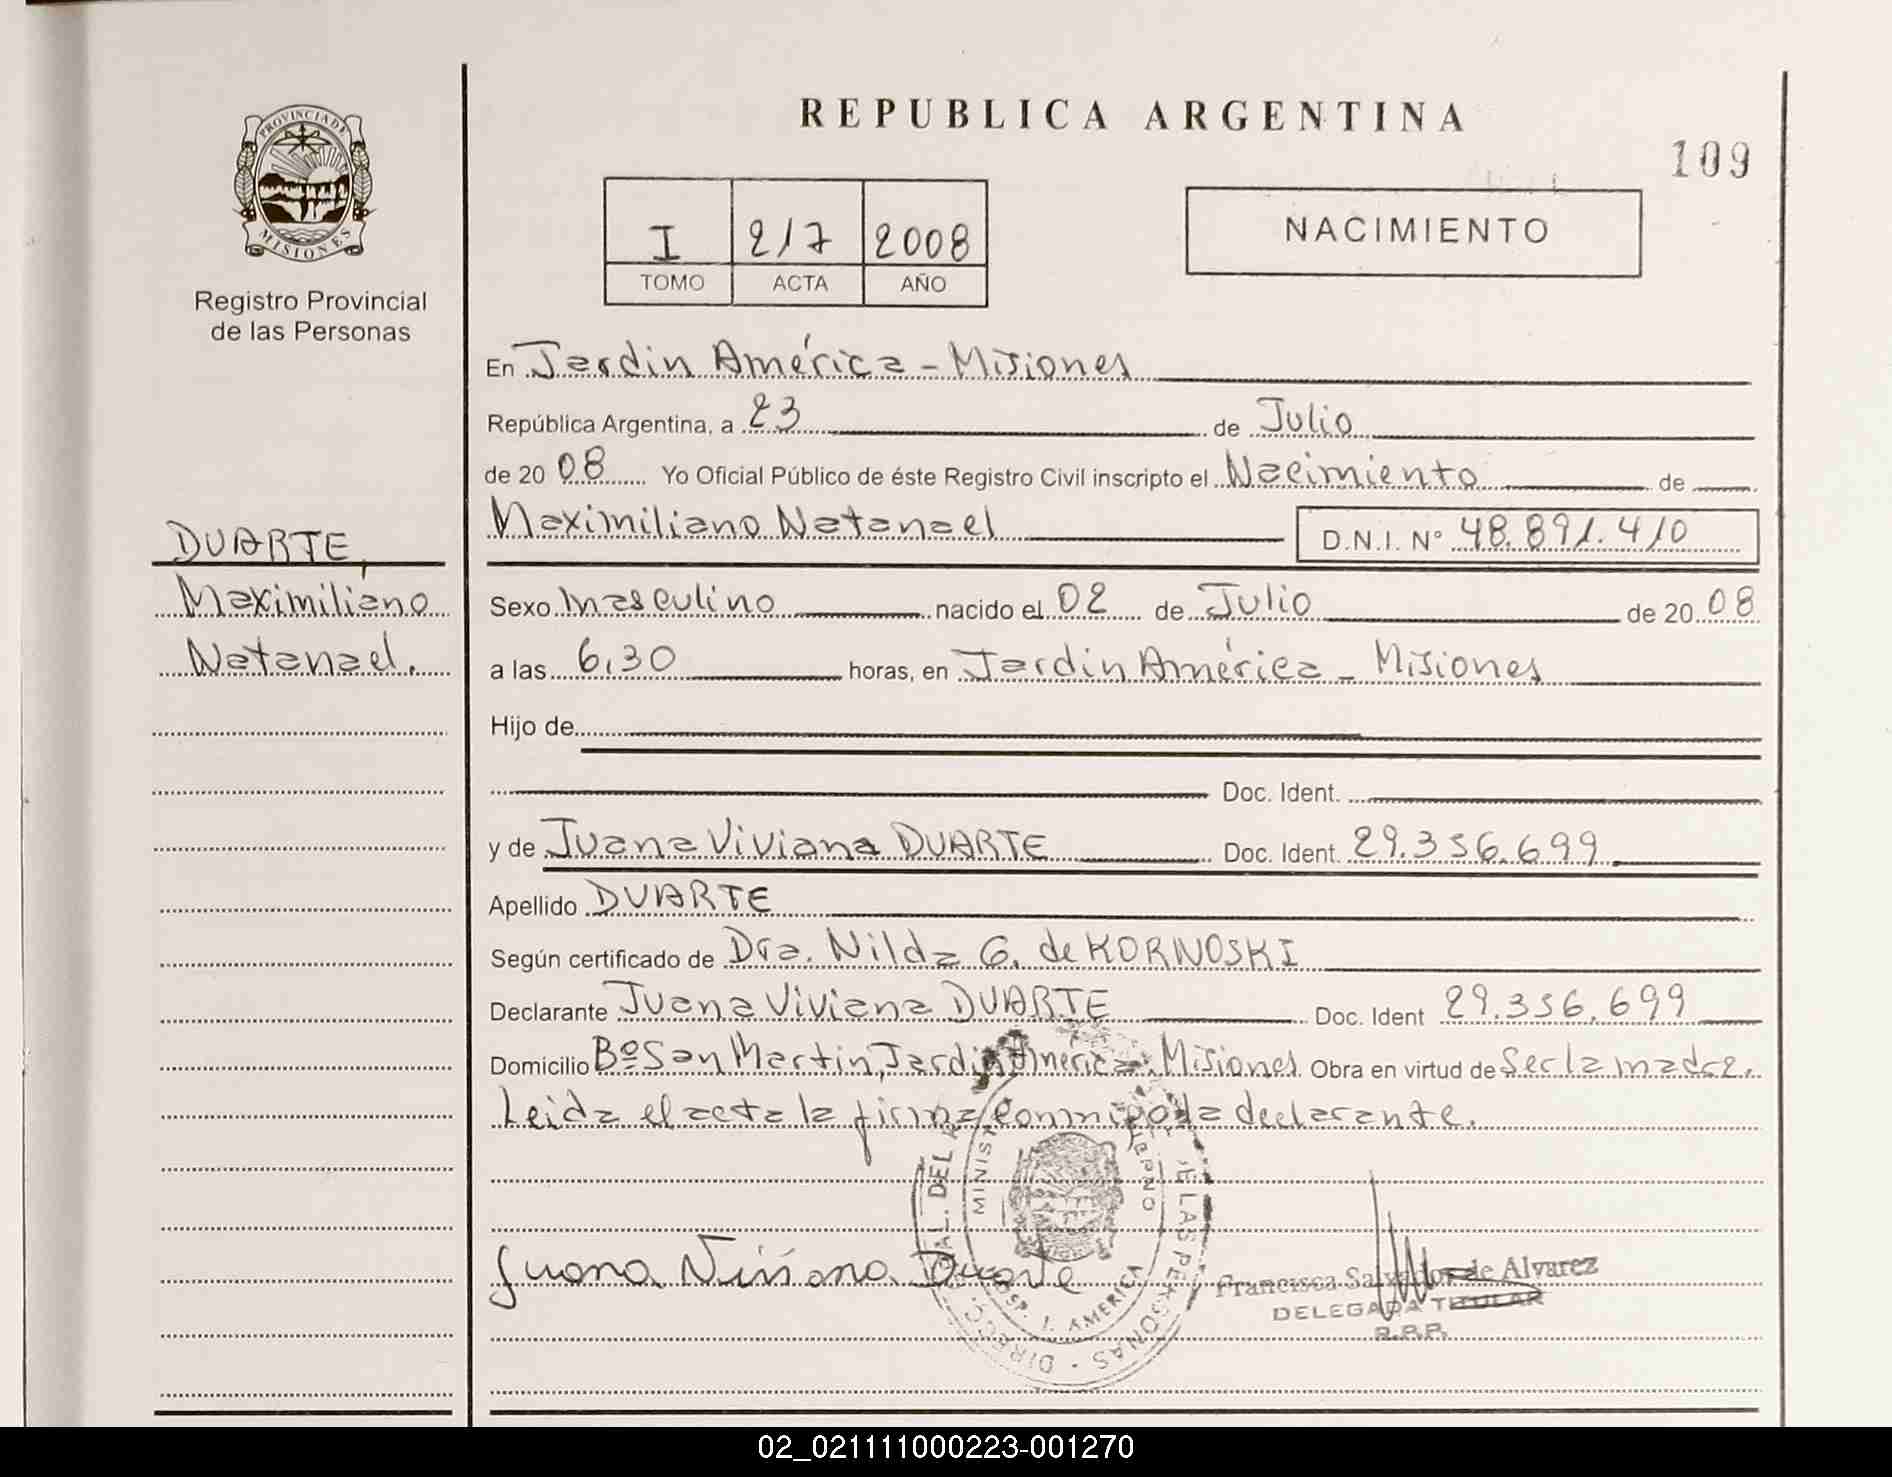 REPUBLICA ARGENTINA
109
PROVINCIA DE
MISIONES
Registro Provincial
de las Personas
I 217 2008
TOMO ACTA AÑO
NACIMIENTO
En Jardin América - Misiones
República Argentina, a 23 de Julio
de 20 08 Yo Oficial Público de éste Registro Civil inscripto el Nacimiento de
Maximiliano Natanael D.N.I. N° 48.891.410
DUARTE,
Maximiliano
Natanael.
Sexo Masculino nacido el 02 de Julio de 20 08
a las 6,30 horas, en Jardin América - Misiones
Hijo de
Doc. Ident.
y de Juana Viviana DUARTE Doc. Ident. 29.356.699
Apellido DUARTE
Según certificado de Dra. Nilda G. de KORNOSKI
Declarante Juana Viviana DUARTE Doc. Ident 29.356.699
Domicilio Bº San Martin, Jardin América. Misiones Obra en virtud de Ser la madre.
Leida el acta la firma conmigo la declarante.
Juana Viviana Duarte
Francisca Salvador de Alvarez
DELEGADA TITULAR
R.P.P.
DE LAS PERSONAS
J. AMERICA
02_021111000223-001270